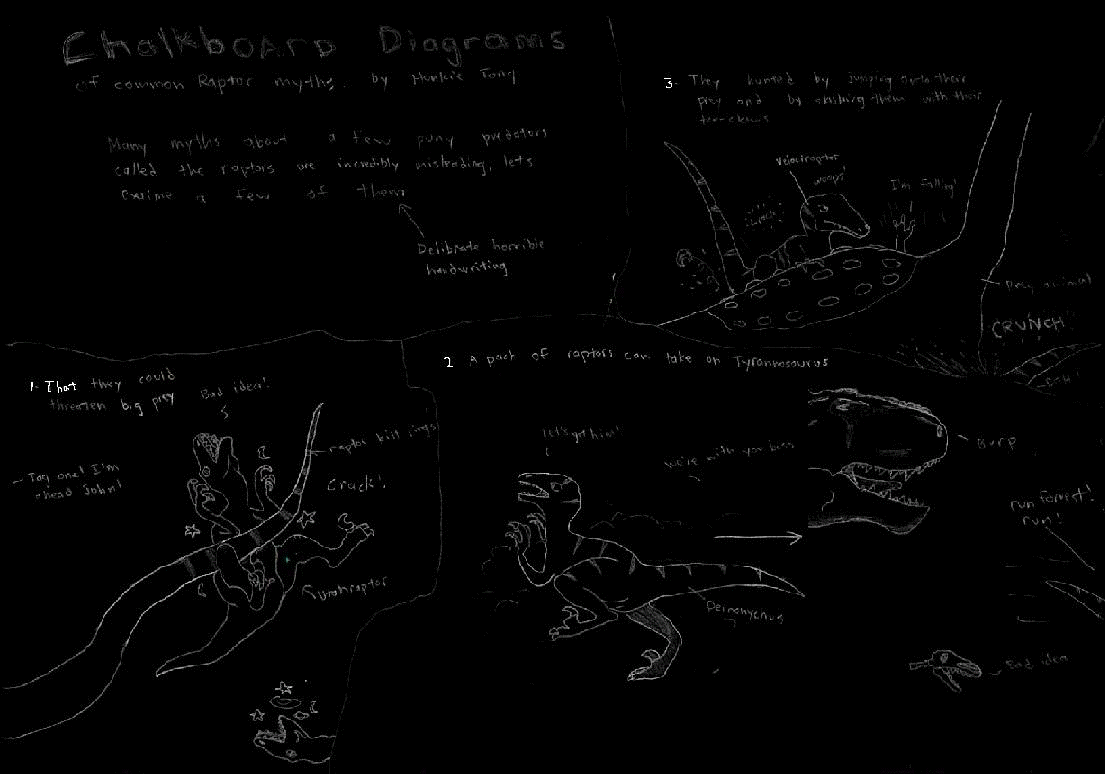 Chalkboard Diagrams
of common Raptor myths. by Hunkie Tong
Many myths about a few puny predators
called the raptors are incredibly misleading, lets
exsime a few of them
Delibrate horrible
handwriting
3- They hunted by jumping onto their
prey and by slashing them with their
toe-claws
Velociraptor
woops!
I'm falling!
Prey animal
CRUNCH!
1- That they could
threaten big prey
Bad idea!
raptor kill
Crack!
I'm
ahead John!
2 A pact of raptors can take on Tyrannosaurus
Let's get him!
we're with you boss
Burp
run forrest!
run!
Deinonychus
Bad idea